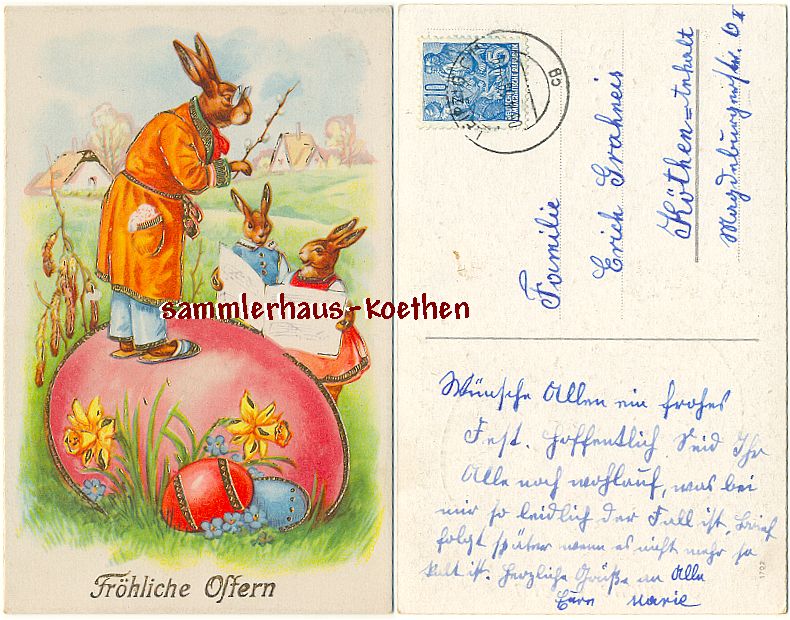 sammlerhaus-koethen
Fröhliche Ostern
10
DEUTSCHE DEMOKRATISCHE REPUBLIK
Familie
Erich Grahneis
Köthen-Anhalt
Magdeburgerstr. 6 II
Wünsche Allen ein frohes
Fest. Hoffentlich Seid Ihr
Alle noch wohlauf, was bei
mir so leidlich der Fall ist. Brief
folgt später wenn es nicht mehr so
kalt ist. Herzliche Grüße an Alle
Eure Marie
1702